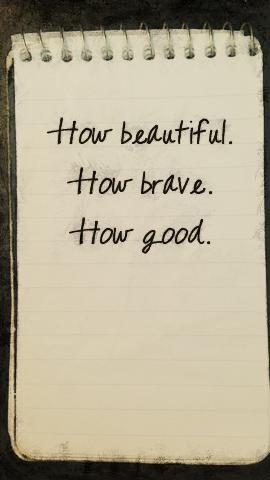 How beautiful.
How brave.
How good.